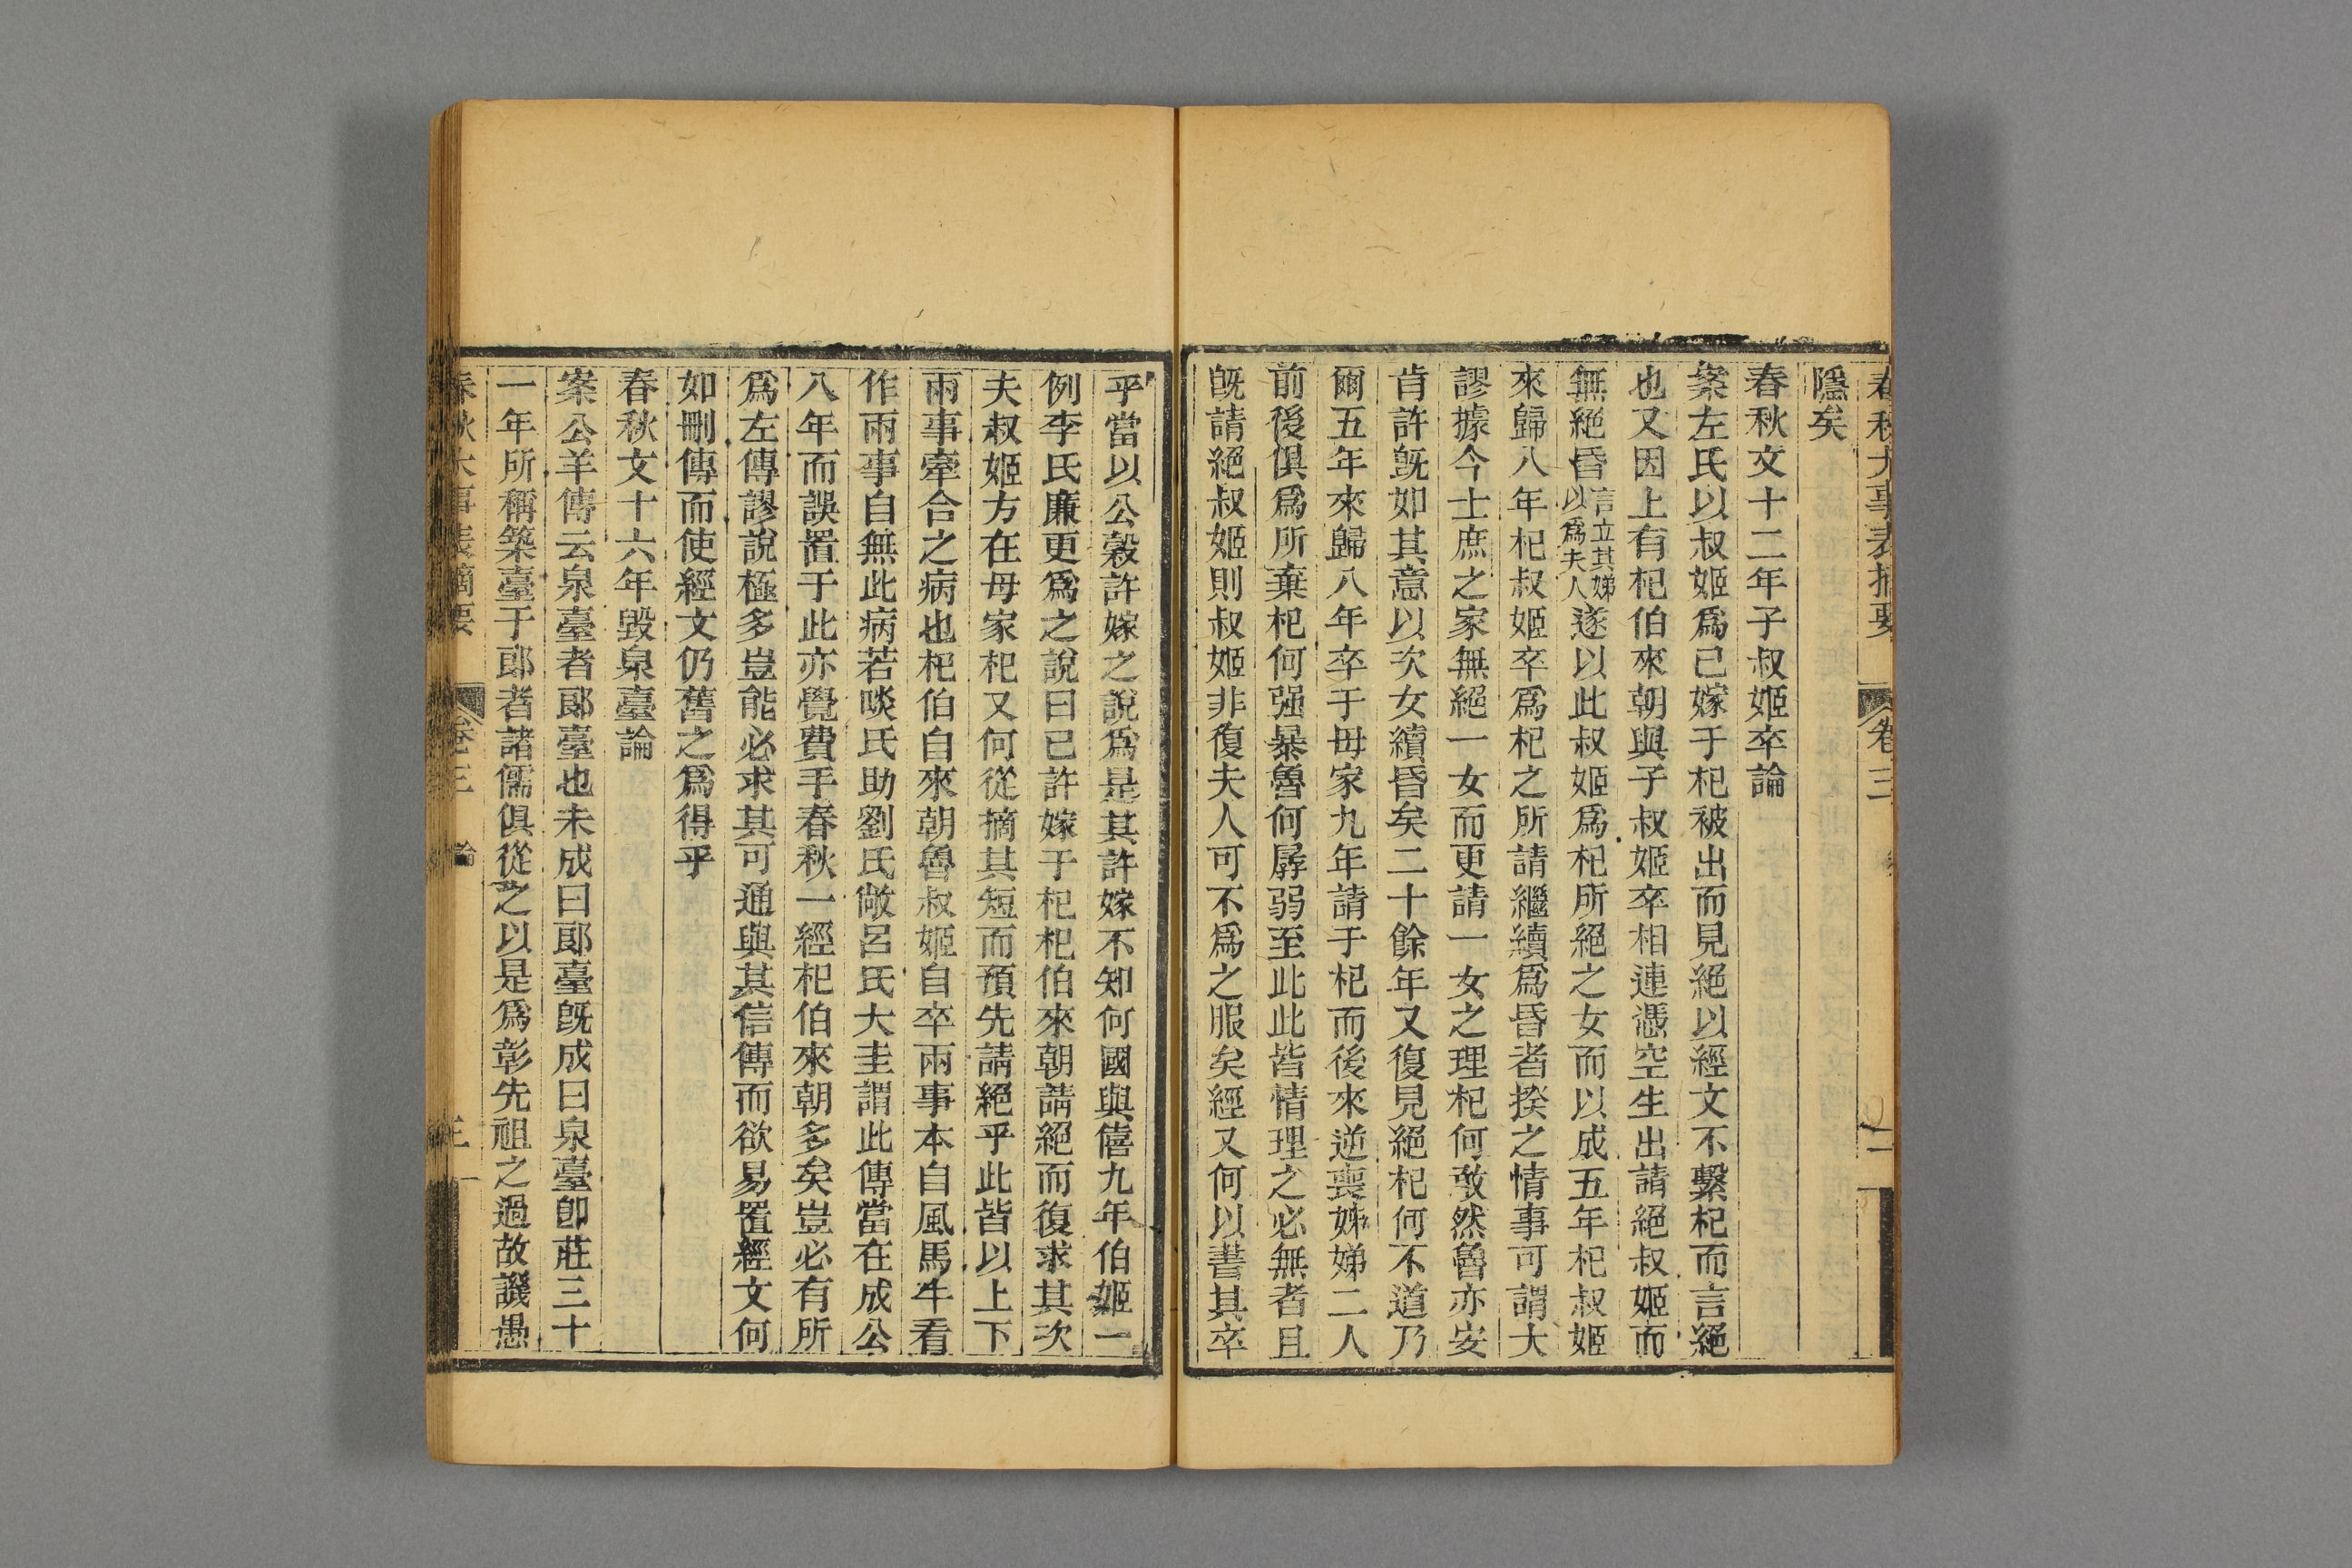 春秋大事表摘要 卷三
隱矣
春秋文十二年子叔姬卒論
案左氏以叔姬爲已嫁于杞被出而見絕以經文不繫杞而言絕
也又因上有杞伯來朝與子叔姬卒相連憑空生出請絕叔姬而
無絕昏言立其娣以爲夫人遂以此叔姬爲杞所絕之女而以成五年杞叔姬
來歸八年杞叔姬卒爲杞之所請繼續爲昏者揆之情事可謂大
謬據今士庶之家無絕一女而更請一女之理杞何敢然魯亦安
肯許旣如其意以次女續昏矣二十餘年又復見絕杞何不道乃
爾五年來歸八年卒于母家九年請于杞而後來逆喪姊娣二人
前後俱爲所棄杞何强暴魯何孱弱至此此皆情理之必無者且
旣請絕叔姬則叔姬非復夫人可不爲之服矣經又何以書其卒
乎當以公穀許嫁之說爲是其許嫁不知何國與僖九年伯姬一
例李氏廉更爲之說曰已許嫁于杞杞伯來朝請絕而復求其次
夫叔姬方在母家杞又何從摘其短而預先請絕乎此皆以上下
兩事牽合之病也杞伯自來朝魯叔姬自卒兩事本自風馬牛看
作兩事自無此病若啖氏助劉氏敞呂氏大圭謂此傳當在成公
八年而誤置于此亦覺費手春秋一經杞伯來朝多矣豈必有所
爲左傳謬說極多豈能必求其可通與其信傳而欲易置經文何
如刪傳而使經文仍舊之爲得乎
春秋文十六年毀泉臺論
案公羊傳云泉臺者郎臺也未成曰郎臺旣成曰泉臺卽莊三十
一年所稱築臺于郎者諸儒俱從之以是爲彰先祖之過故譏愚
春秋大事表摘要 卷三 論